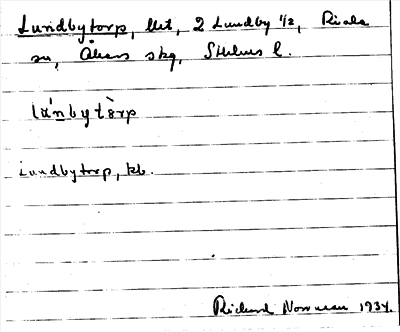 Lundbytorp, lht, 2 Lundby 1/2, Riala
sn, Åkers skg, Sthlms l.
lu̍nbytȍrp
Lundbytorp, kb.
Rickard Norman 1934.